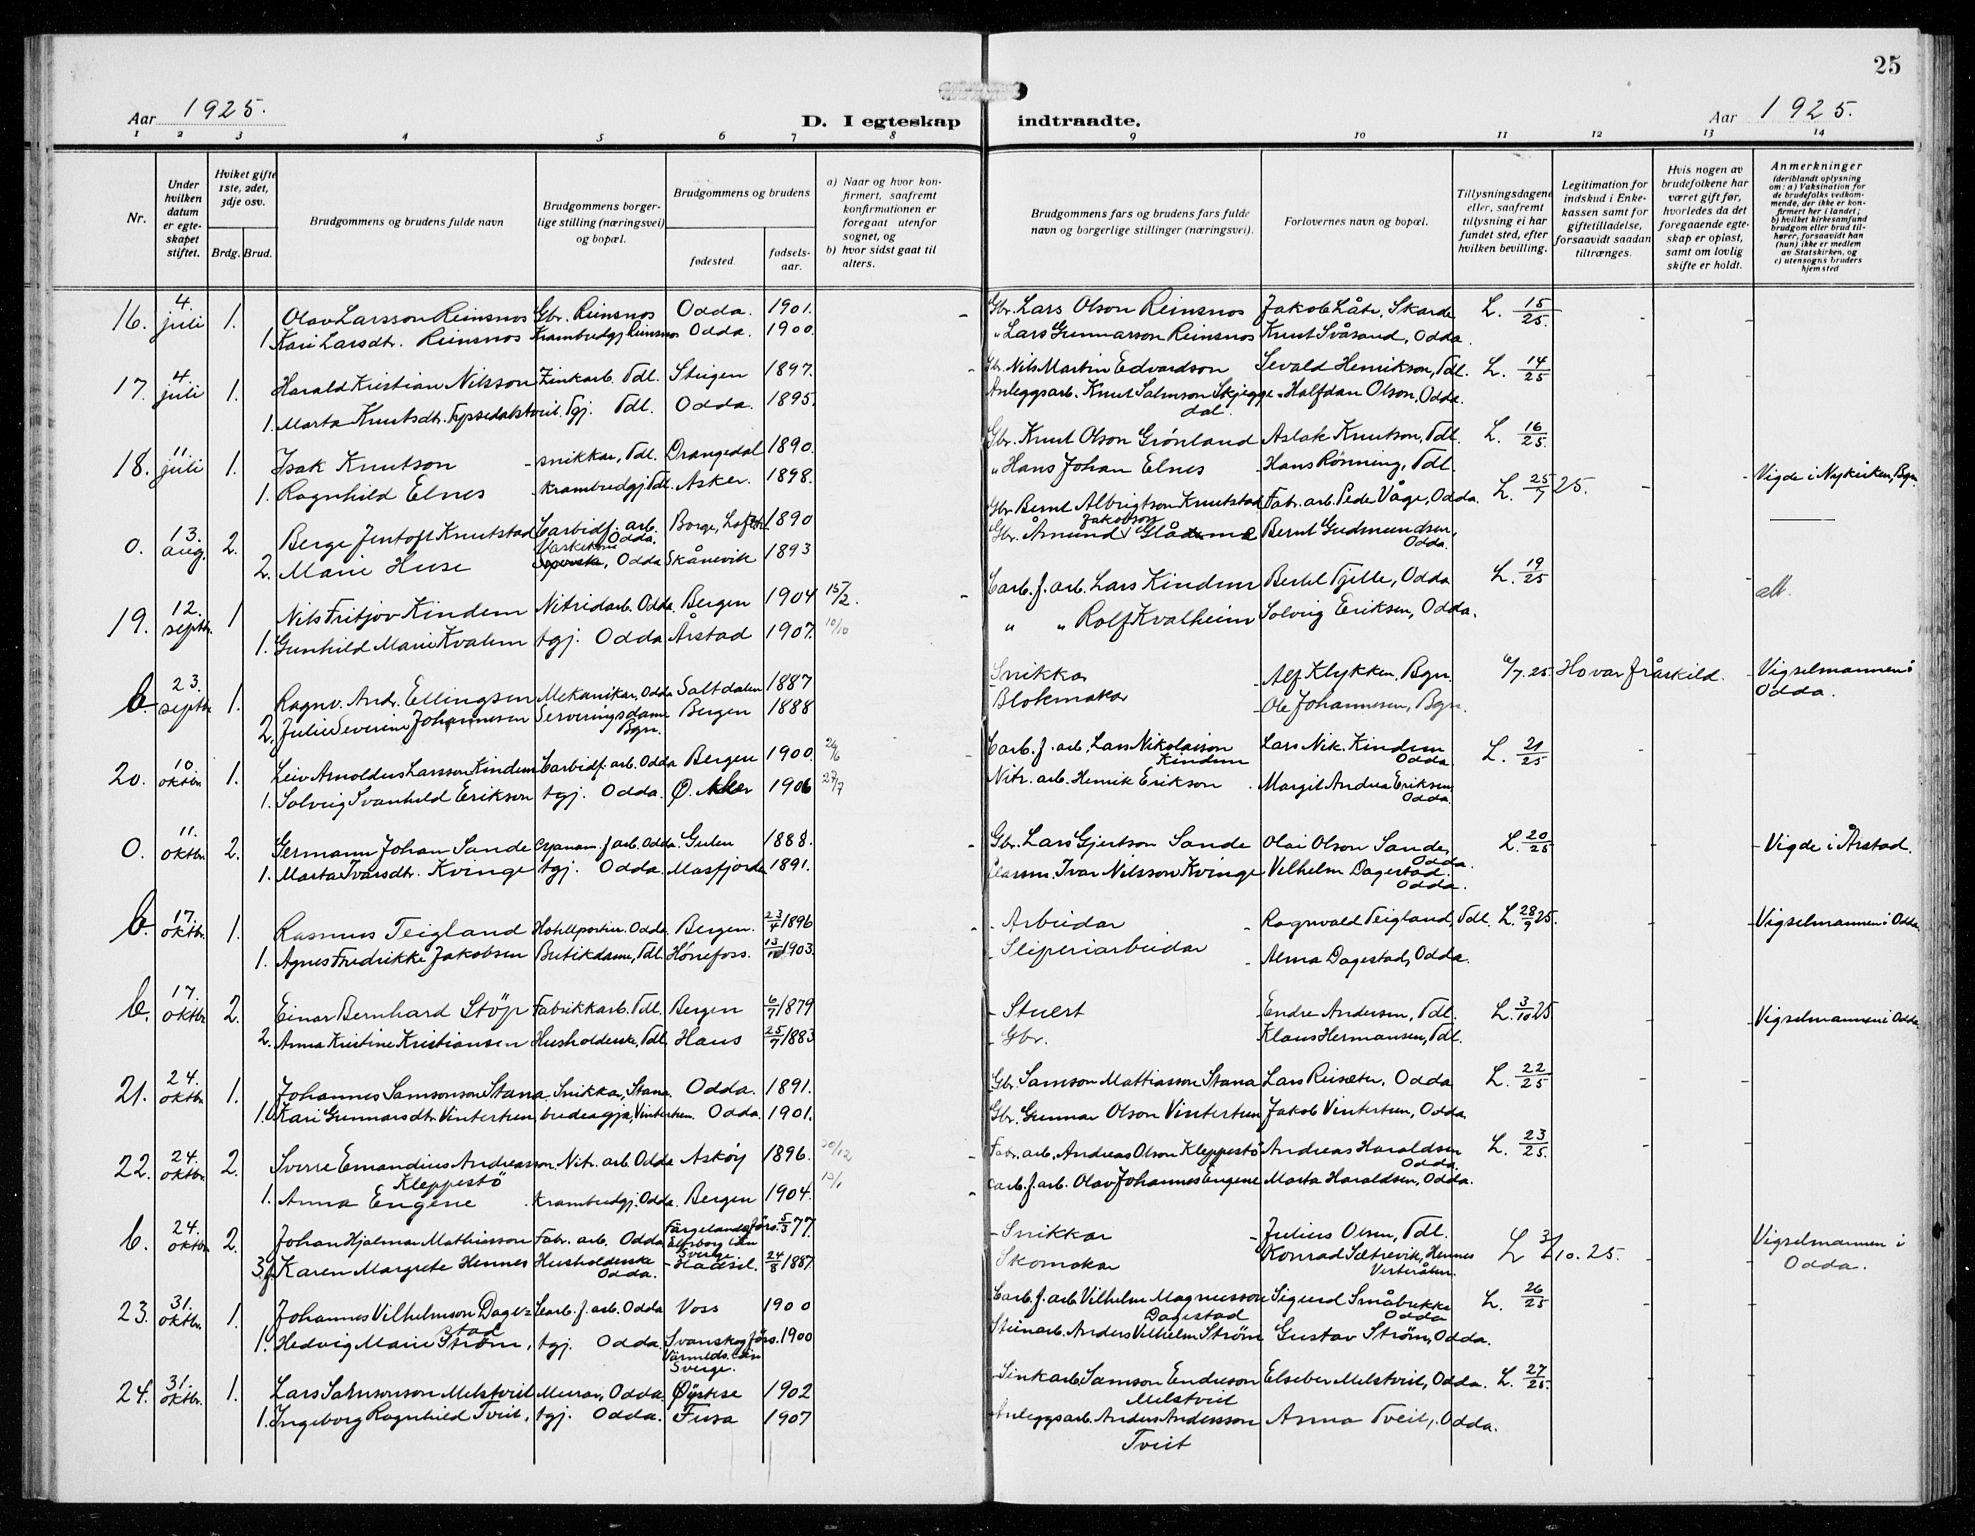 25
Aar 1925.
D. I egteskap indtraadte.
Aar 1925.
1 2 3 4 5 6 7 8 9 10 11 12 13 14
Nr.
Under hvilken datum er egteskapet stiftet.
Hviket gifte 1ste, 2det, 3dje osv.
Brdg. Brud.
Brudgommens og brudens fulde navn
Brudgommens borgerlige stilling (næringsvei) og bopæl.
Brudgommens og brudens
fødested. fødselsaar.
a) Naar og hvor konfirmert, saafremt konfirmationen er foregaat utenfor sognet, og
b) hvor sidst gaat til alters.
Brudgommens fars og brudens fars fulde navn og borgerlige stillinger (næringsvei).
Forlovernes navn og bopæl.
Tillysningsdagene eller, saafremt tillysning ei har fundet sted, efter hvilken bevilling.
Legitimation for indskud i Enkekassen samt for giftetilladelse, forsaavidt saadan tiltrænges.
Hvis nogen av brudefolkene har været gift før, hvorledes da det foregaaende egteskap er opløst, samt om lovlig skifte er holdt.
Anmerkninger (deriblandt oplysning om: a) Vaksination for de brudefolks vedkommende, der ikke er konfirmert her i landet; b) hvilket kirkesamfund brudgom eller brud tilhører, forsaavidt han (hun) ikke er medlem av Statskirken, og c) utensogns bruders hjemsted
16. 4. juli 1. Olav Larsson Reinsnos Gbr. Reinsnos Odda. 1901. Gbr. Lars Olson Reinsnos Jakob Låte, Skarde L. 15/25.
1. Kari Larsdtr. Reinsnos Krambudgj Reinsnos Odda. 1900. " Lars Gunnarson Reinsnos Knut Svåsand, Odda.
17. 4. juli 1. Harald Kristian Nilsson Zinkarb. Tdl. Steigen 1897. Gbr. Nils Martin Edvardson Sevald Henrikson, Tdl. L. 14/25
1. Marta Knutsdtr. Tyssedalstveit. Tgj. Tdl. Odda. 1895. Anleggsarb. Knut Salmson Skjeggedal. Halfdan Olson, Odda.
18. 11. juli 1. Isak Knutson snikkar, Tdl. Drangedal 1890. Gbr. Knut Olson Grønland Aslak Knutson, Tdl. L. 16/25.
1. Ragnhild Elnes Krambudgj Tdl. Asker. 1898. " Hans Johan Elnes Hans Rønning, Tdl. Vigde i Nykirken, Bgn
0. 13. aug. 2. Berge Jentoft Knutstad Carbidf. arb. Odda. Borge, Lofot. 1890 Gbr. Bernt Albrigtson Knutstad Fab. arb. Peder Våge, Odda. L. 25/7 25.
2. Marie Huse Vaskekone, Odda Skånevik 1893 Gbr. Åmund Jakobson Bernt Gudmundsen, Odda.
19. 12. septbr. 1 Nils Fritjov Kindem Nitridarb. Odda Bergen 1904 15/2. Carb. f. arb. Lars Kindem Bertel Tjelle, Odda L. 19/25
1. Gunhild Marie Kvalem tgj. Odda Årstad 1907. 10/10 " " Rolf Kvalheim Solveig Eriksen, Odda.
b. 23. septbr. 1. Ragnv. Andr. Ellingsen Mekanikar, Odda Saltdalen 1887 Snikkar Alf Klykken, Bgn. 6/7.25. Ho var fråskild. Vigselmannen i Odda.
2. Julie Severine Johannesen Serveringsdame Bgn. Bergen 1888 Blokmakar Ole Johannesen, Bgn.
20. 10. oktbr. 1. Leiv Arnoldus Larsson Kindem Carbidf. arb. Odda Bergen 1900. 24/6 Carb. f. arb. Lars Nikolaison Kindem Lars Nik. Kindem Odda. L. 21/25
1. Solveig Svanhild Erikson tgj. Odda. Ø. Aker 1906 27/7 Nitr. arb. Henrik Erikson Margit Andrea Eriksen, Odda.
0. 11. oktbr. 2. Germann Johan Sande Cyanam. f. arb. Odda. Gulen 1888. Gbr. Lars Gjertson Sande Olai Olson Sande, Odda. L. 20/25 Vigde i Årstad.
1. Marta Ivarsdtr. Kvinge tgj. Odda. Masfjorden 1891. Ivar Nilsson Kvinge Vilhelm Dagestad. Odda.
b. 17. oktbr. 1. Rasmus Teigland Hotellportier. Odda. Bergen. 23/4 1896 Arbeidar Ragnvald Teigland, Tdl. L. 28/9 25. Vigselmannen i Odda
1. Agnes Fredrikke Jakobsen Butikdame, Tdl. Hønefoss. 13/10 1903. Sliperiarbeidar Alma Dagestad, Odda.
b. 17. oktbr. 2. Einar Bernhard Støp Fabrikkarb. Tdl. Bergen 6/7 1879 Stuert Endre Andersen, Tdl. L. 3/10 25 Vigselmannen i Odda
2. Anna Kristine Kristiansen Husholderske, Tdl. Haus 25/7 1883 Gbr. Klaus Hermansen, Tdl.
21. 24. oktbr. 1. Johannes Samsonson Stana Snikkar, Stana. Odda. 1891. Gbr. Samson Mattiasson Stana Lars Reisæter, Odda L. 22/25
1. Kari Gunnarsdtr. Vintertun, budeiagja, Vintertun. Odda. 1901. Gbr. Gunnar Olson Vintertun Jakob Vintertun, Odda
22. 24. oktbr. 2. Sverre Emandius Andreasson Kleppestö Nitr. arb. Odda Askøy 1896. 20/12 Fabr. arb. Andreas Olson Kleppestö Andreas Haraldsen Odda. L. 23/25.
1. Anna Engene Krambudgj. Odda. Bergen 1904. Carb. f. arb. Olav Johannes Engene Marta Haraldsen, Odda.
b. 24. oktbr. 2. Johan Hjalmar Mathiasson Fabr. arb. Odda Färgelands förs. Elfsborg län Sverge 5/3 77. Snikkar Julius Olsen, Tdl. L 3/10. 25. Vigselmannen i Odda.
3. Karen Margrete Hennes Husholderske Odda. Hadsel. 24/8 1887 Skomakar Konrad Sætrevik, Hennes Vesterålen.
23. 31. oktbr. 1. Johannes Vilhelmson Dagestad Carb. f. arb. Odda Voss 1900 Carb. f. arb Vilhelm Magnusson Dagestad Sigurd Småbrekke Odda L. 26/25
1. Hedvig Marie Strøm, tgj. Odda. Svanskog förs. Värmlds. län Sverge. 1900 Steinarb. Anders Vilhelm Strøm Gustav Strøm, Odda.
24. 31. oktbr. 1. Lars Samsonson Melstveit Murar, Odda. Øystese 1902 Sinkarb. Samson Endreson Melstveit Elseber Melstveit, Odda. L. 27/25.
1. Ingeborg Ragnhild Tveit, tgj. Odda. Fusa 1907 Anleggsarb. Anders Andersson Tveit Anna Tveit, Odda.